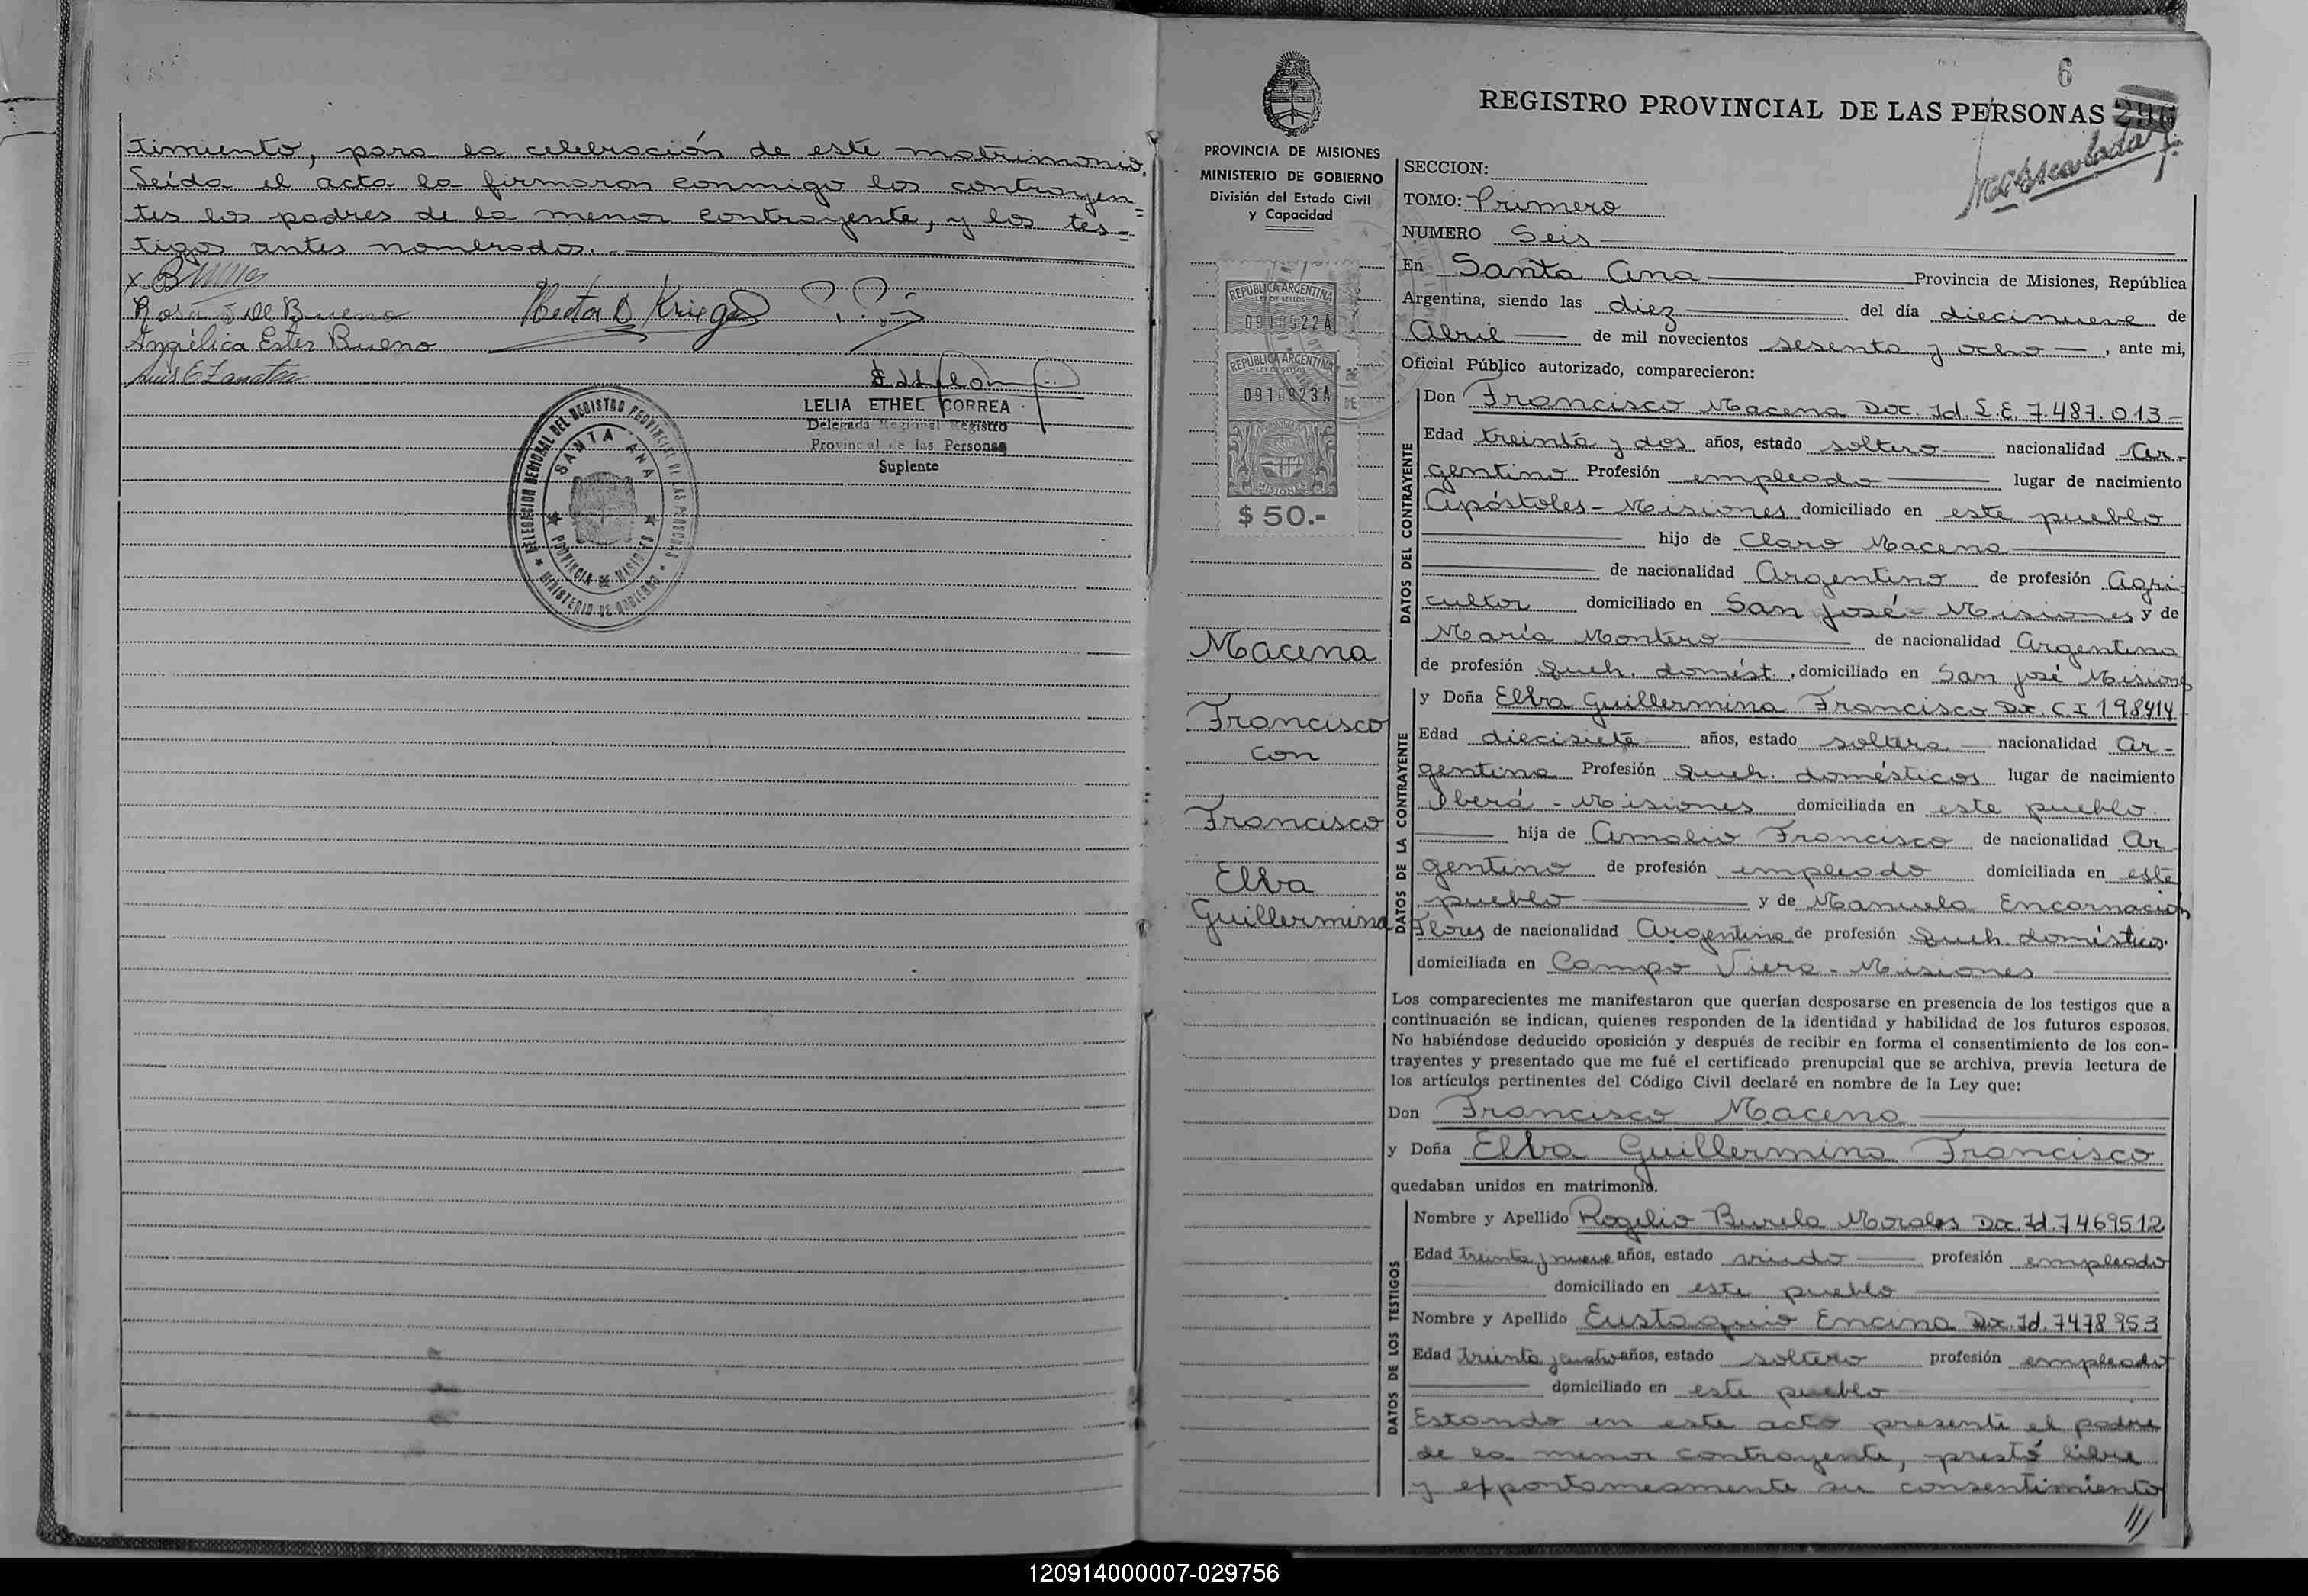 timiento, para la celebración de este matrimonio.
Leida el acta la firmaron conmigo los contrayen=
tes los padres de la menor contrayente, y los tes=
tigos antes nombrados.-
x
Rosa de Bueno
Hector D. Krieger
Angélica Ester Bueno
LELIA ETHEL CORREA
Delegada Regional Registro
Provincial de las Personas
Suplente
DELEGACION REGIONAL DEL REGISTRO PROVINCIAL DE LAS PERSONAS
SANTA ANA
PROVINCIA DE MISIONES
MINISTERIO DE GOBIERNO
6
REGISTRO PROVINCIAL DE LAS PERSONAS 296
PROVINCIA DE MISIONES
MINISTERIO DE GOBIERNO
División del Estado Civil
y Capacidad
REPUBLICA ARGENTINA
LEY DE SELLOS
0910922A
REPUBLICA ARGENTINA
LEY DE SELLOS
0910923A
MISIONES
$ 50.-
Macena
Francisco
con
Francisco
Elba
Guillermina
SECCION:
TOMO: Primero
NUMERO Seis
En Santa Ana Provincia de Misiones, República
Argentina, siendo las diez del día diecinueve de
Abril de mil novecientos sesenta y ocho, ante mi,
Oficial Público autorizado, comparecieron:
DATOS DEL CONTRAYENTE
Don Francisco Macena Doc. Id. L.E. 7.487.013-
Edad treinta y dos años, estado soltero nacionalidad Ar-
gentino Profesión empleado lugar de nacimiento
Apóstoles - Misiones domiciliado en este pueblo
hijo de Claro Macena
de nacionalidad Argentino de profesión Agri-
cultor domiciliado en San José - Misiones y de
María Montero de nacionalidad Argentina
de profesión Queh. domést., domiciliado en San José Misiones
DATOS DE LA CONTRAYENTE
y Doña Elba Guillermina Francisco Doc. C.I 198414
Edad diecisiete años, estado soltera nacionalidad Ar-
gentina Profesión Queh. domésticos lugar de nacimiento
Iberá - Misiones domiciliada en este pueblo.
hija de Amalio Francisco de nacionalidad Ar
gentino de profesión empleado domiciliada en este
pueblo y de Manuela Encarnación
Flores de nacionalidad Argentina de profesión Queh. domésticos.
domiciliada en Campo Viera - Misiones
Los comparecientes me manifestaron que querían desposarse en presencia de los testigos que a
continuación se indican, quienes responden de la identidad y habilidad de los futuros esposos.
No habiéndose deducido oposición y después de recibir en forma el consentimiento de los con-
trayentes y presentado que me fué el certificado prenupcial que se archiva, previa lectura de
los artículos pertinentes del Código Civil declaré en nombre de la Ley que:
Don Francisco Macena
y Doña Elba Guillermina Francisco
quedaban unidos en matrimonio.
DATOS DE LOS TESTIGOS
Nombre y Apellido Rogelio Burela Morales Doc. Id. 7469512
Edad treinta y nueve años, estado viudo profesión empleado
domiciliado en este pueblo
Nombre y Apellido Eustaquio Encina Doc. Id. 7478953
Edad treinta y cuatro años, estado soltero profesión empleado
domiciliado en este pueblo
Estando en este acto presente el padre
de la menor contrayente, prestó libre
y expontaneamente su consentimiento
///
120914000007-029756